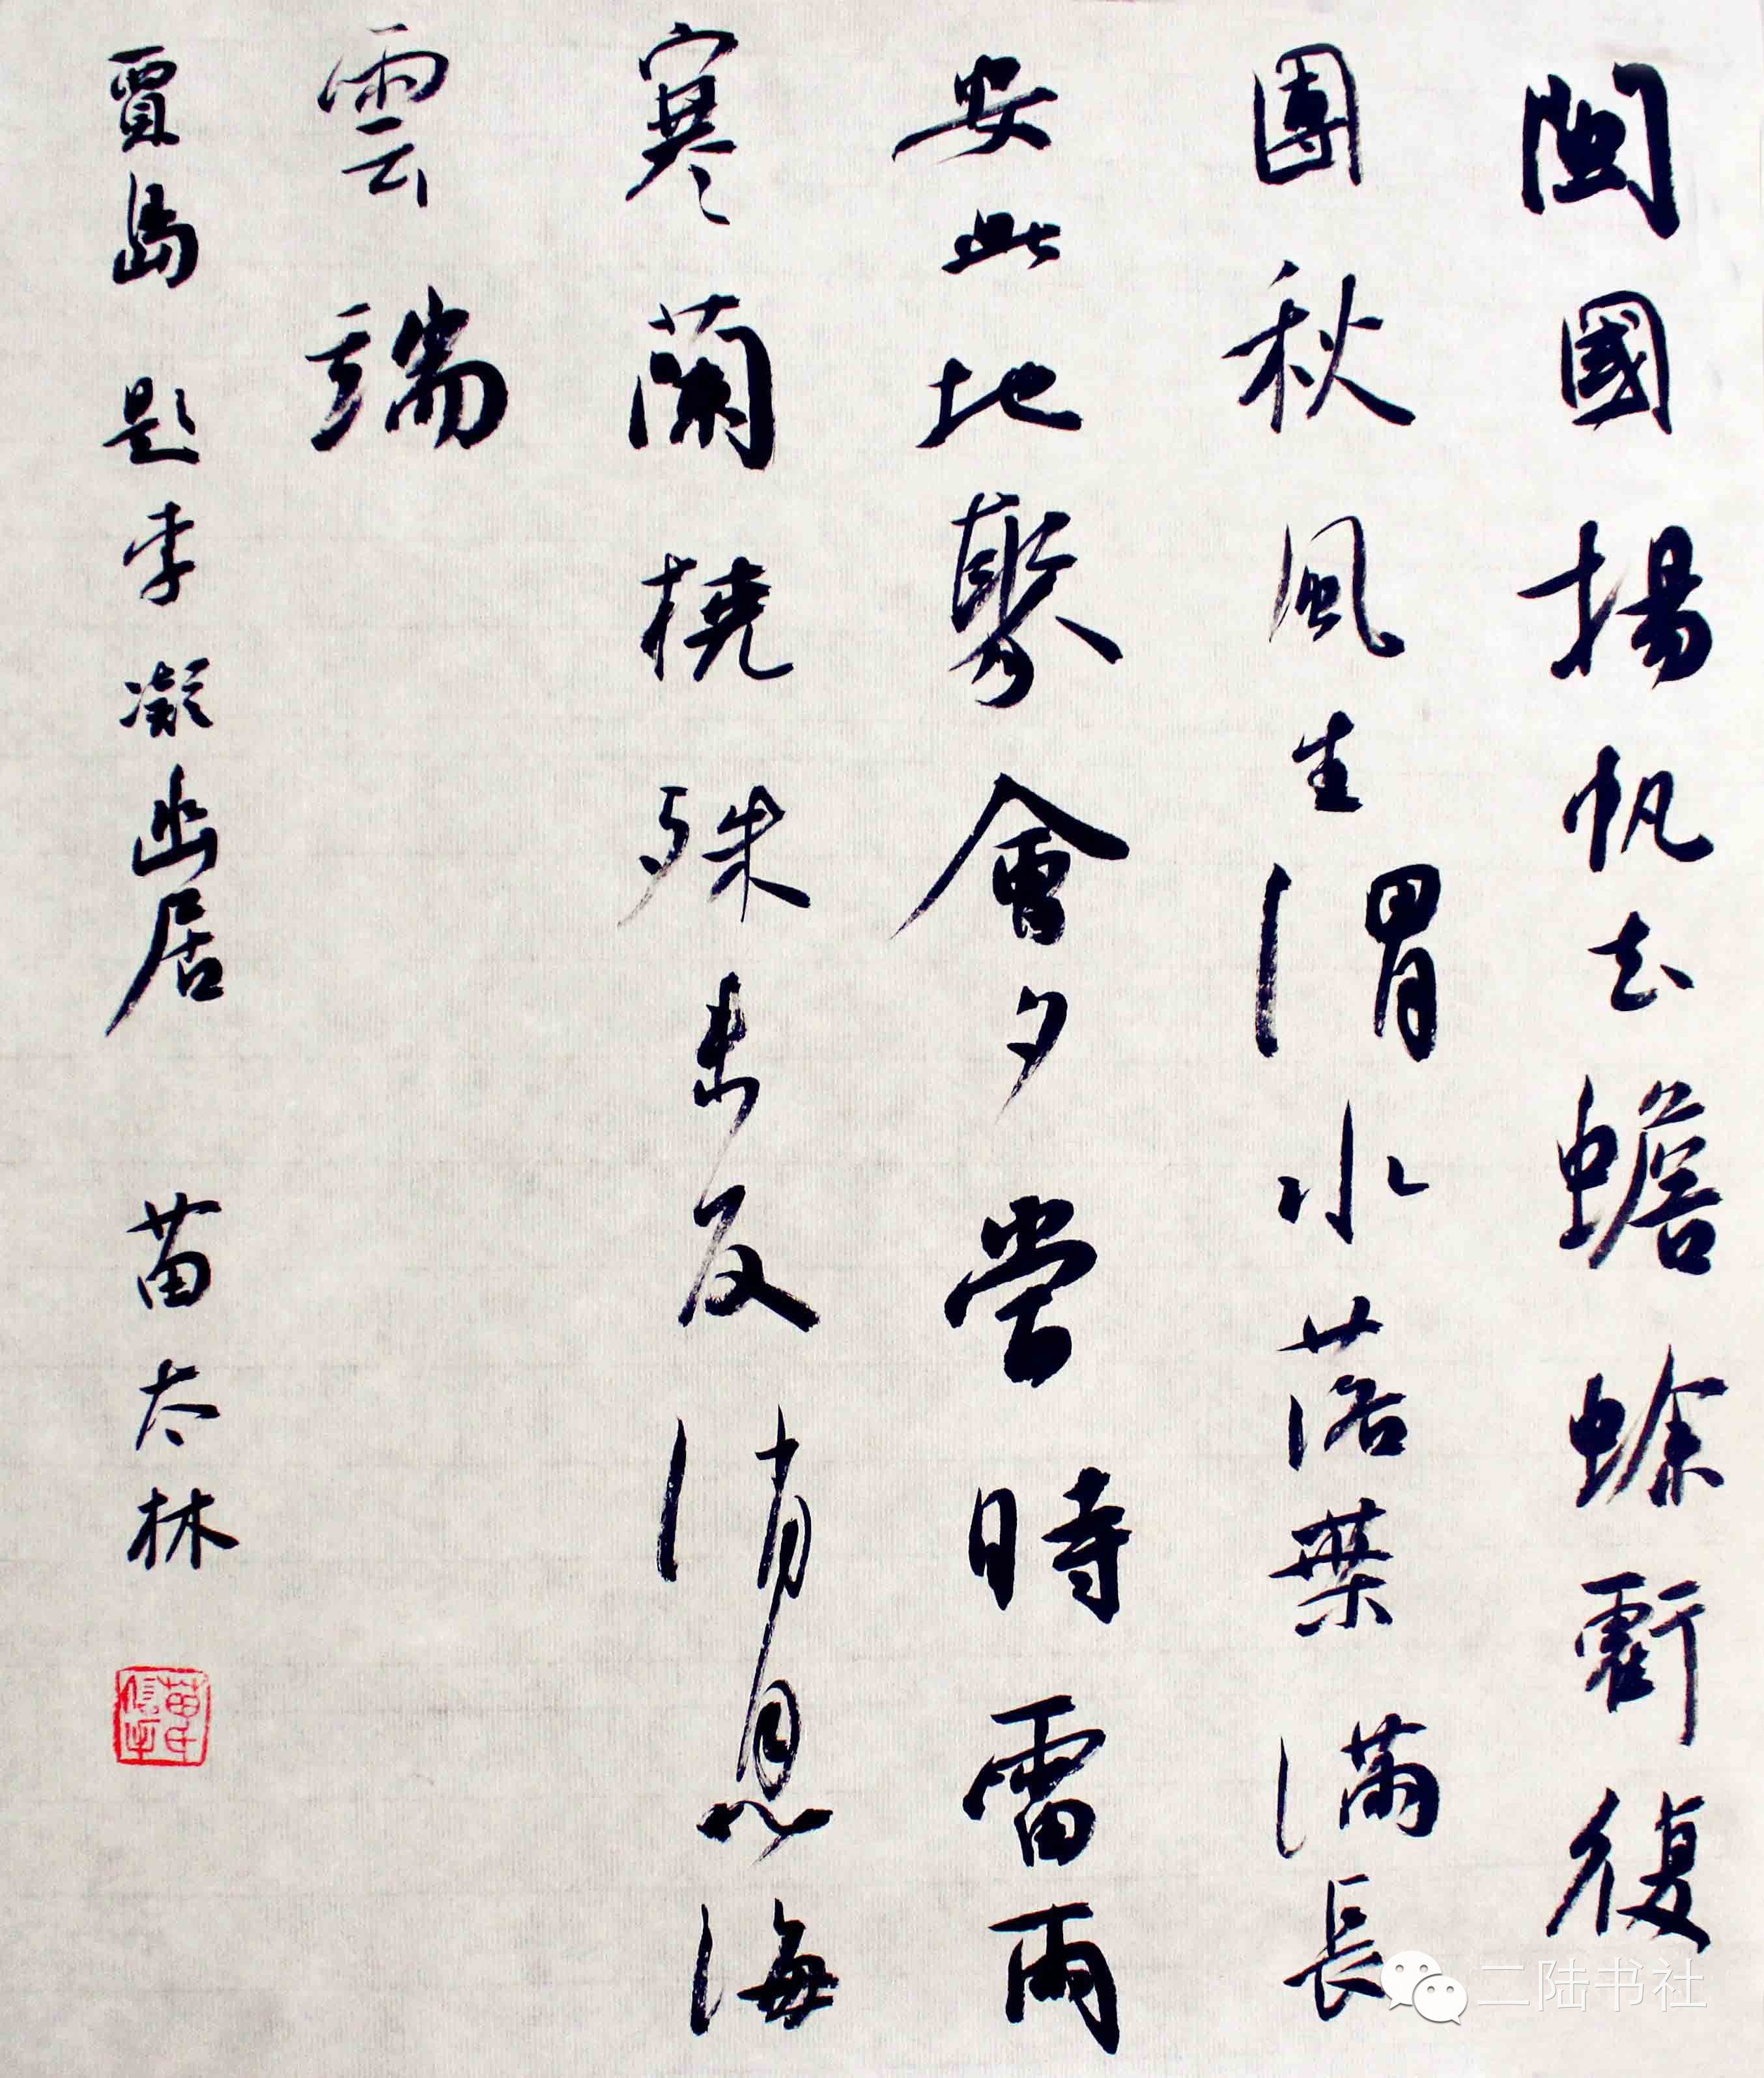 閩國揚帆去蟾蜍虧復
團秋風生渭水落葉滿長
安此地聚會夕當時雷雨
寒蘭橈殊未反消息海
雲端
賈島 題李凝幽居 苗太林
二陆书社